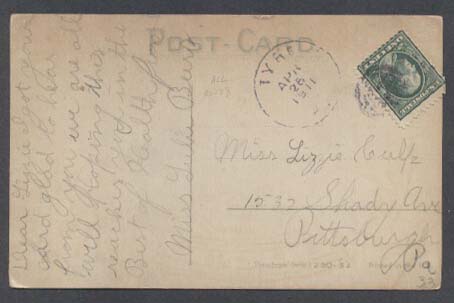 POST-CARD
Dear Lizzie I got your
card glad to hear
from you we are all
well Hoping this
reaches you in the
Best of Health from
Miss Lulu
TYR
APR
26
1911
Miss Lizzie Culp
1532 Shady Ave
Pittsburgh
Pa
33